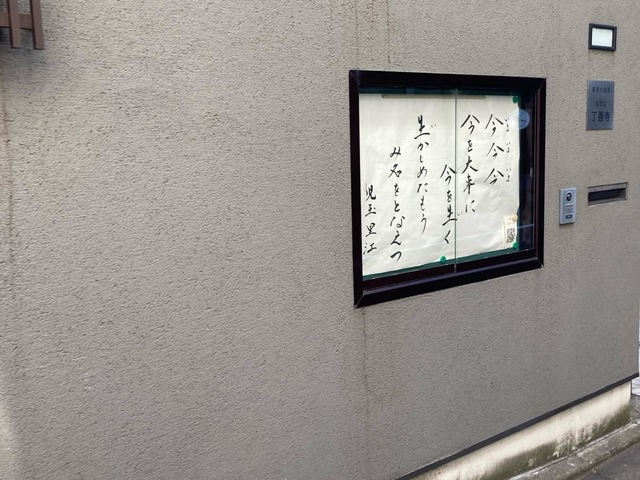 今今今
今を大事に
今を生く
生かしめたもう
み名をとなえつ
児玉里江
真宗大谷派
了善寺